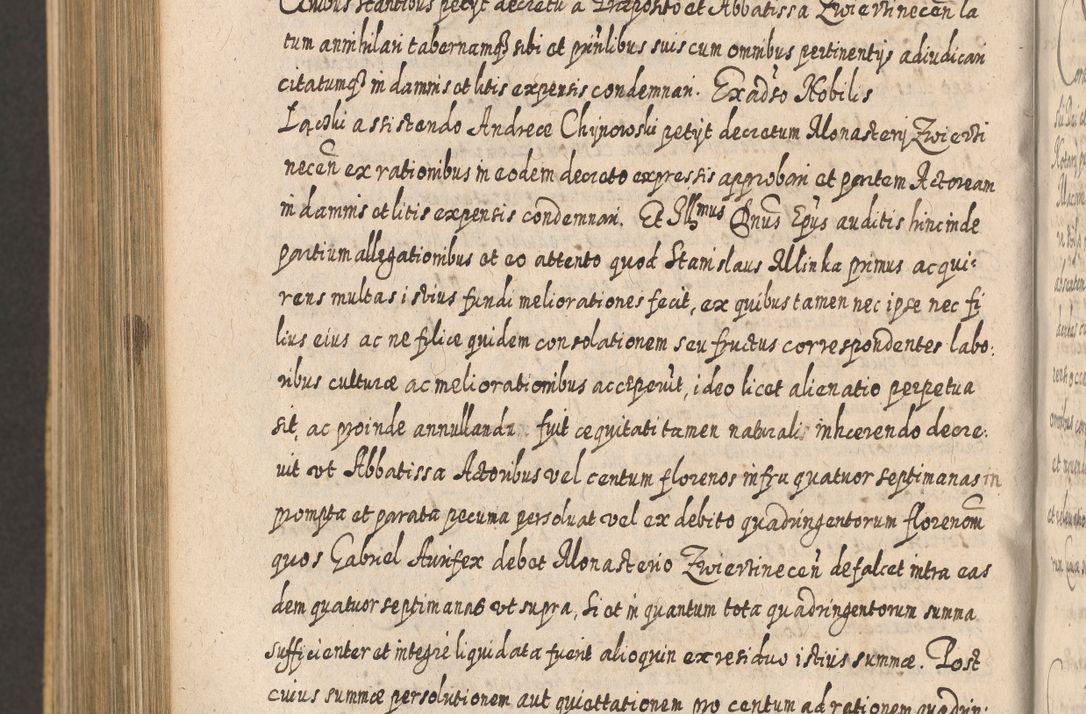 stantibus petyt decretu a Præposito et Abbatissa Zwierzinecen̄ la
tum annihilari tabernamq̃ sibi et prin̄libus suis cum omnibus pertinentÿs adiudicari
citatumq̃ in damnis et litis expensis condemnari. Ex adṽso Nobilis
Łącski assistendo Andreæ Chÿnowski petÿt decretum Monasterÿ Zwierzi
necen̄ ex rationibus in eodem decreto expressis approbari et partem Actoream
in damnis et litis expensis condemnari. Et Illmus Dn̄us Epūs auditis hincinde
partium allegationibus et eo attento quod Stanislaus Mlinka primus acqui:
rens multas istius fundi meliorationes fecit, ex quibus tamen nec ipse nec fi
lius eius ac ne filiæ quidem consolationem seu fructus correspondentes labo:
ribus culturæ ac meliorationibus acceperūt, ideo licet alienatio perpetua
sit, ac proinde annullanda fuit æquitati tamen naturali inhærendo decre:
uit vt Abbatissa Actoribus vel centum florenos infra quatuor septimanas in
prompta et parata pecunia persoluat vel ex debito quadringentorum florenorū
quos Gabriel Aurifex debet Monasterio Zwierzinecen̄ defalcet intra eas
dem quatuor septimanas vt supra, Si et in quantum tota quadringentorum summa
sufficienter et integre liquidata fuerit alioquin ex residuo istius summæ. Post
cuius summæ persolutionem aut quiettationem pro centum ad rationem quadrin: